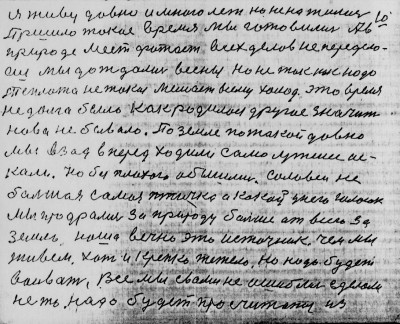 я живу давно и много лет но не нажился 10.
Пришло такое время мы готовились Ль
природе мест хватает всех делов не передела
ем мы дождалися весны но не так как надо
теплота не такая мешает всему холод. Это время
не долга было как родилася другое значит
нова не бывало. По земле по такой давно
мы взад вперед ходили само лутшие ис-
кали. Но бы плохога обошли. Соловей не
балшая самая птичка а какой у него голосок
мы продрались за природу больше ат всего за
землю, наша вечна это источник, чем мы
живем, хоть и крепко тежело, но надо будет
ваиват, Все мы сваими не ошиблись сделали
не ть надо будет просчитать из